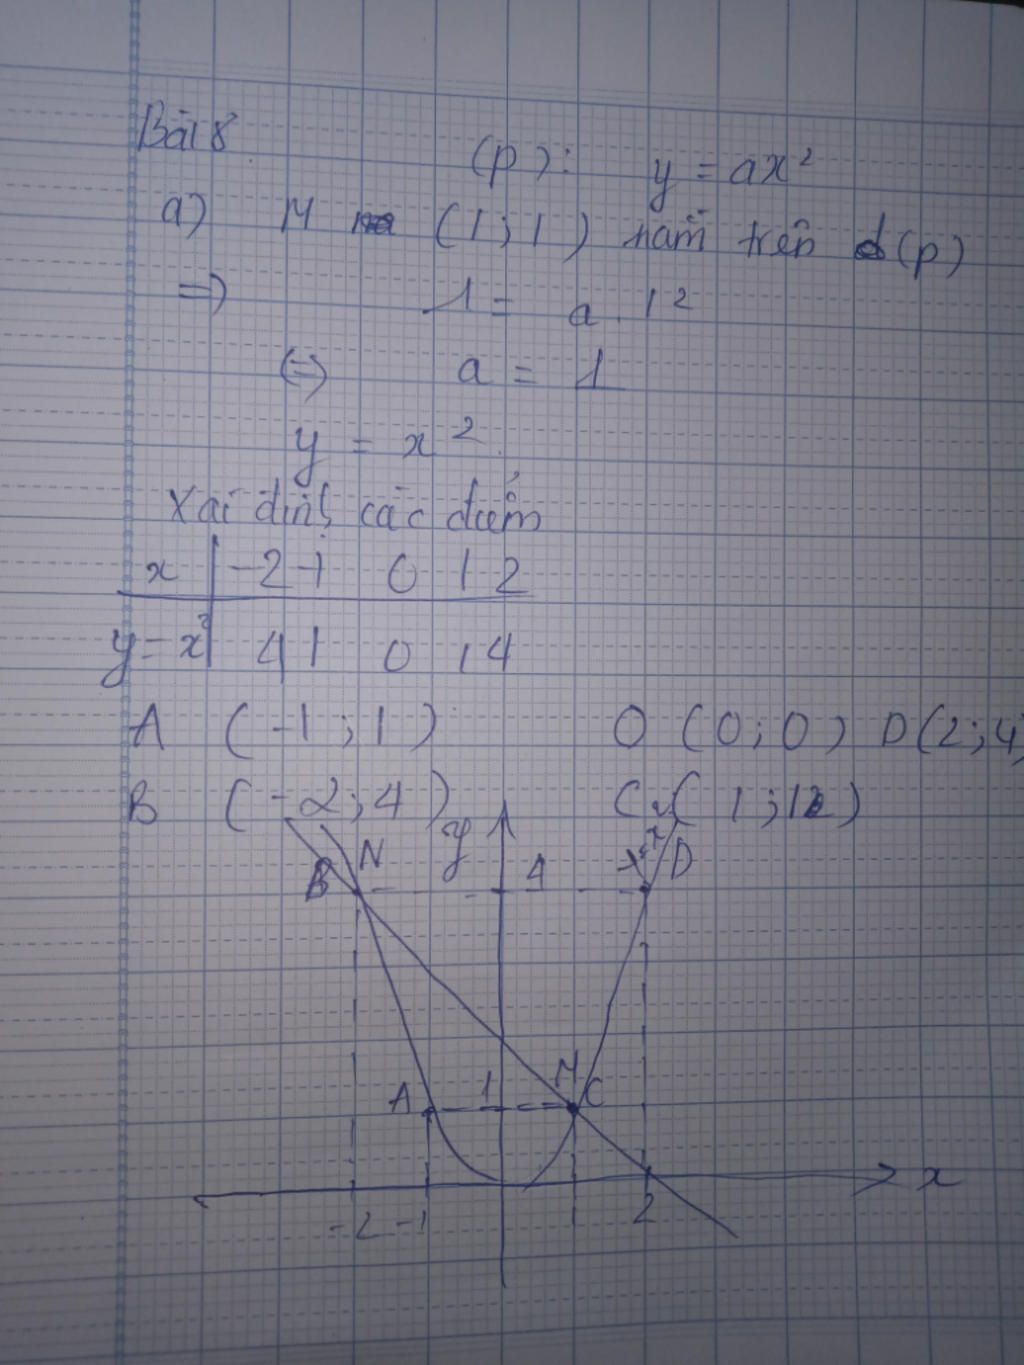 Bài 8
(P): y = ax²
a) M (1;1) nằm trên (P)
=> 1 = a.1²
<=> a = 1
y = x²
Xác định các điểm
x | -2 -1 0 1 2
y = x² | 4 1 0 1 4
A (-1;1) O (0;0) D(2;4)
B (-2;4) C (1;1)
y
B N 4 D
A 1 M C
-2 -1 2 x